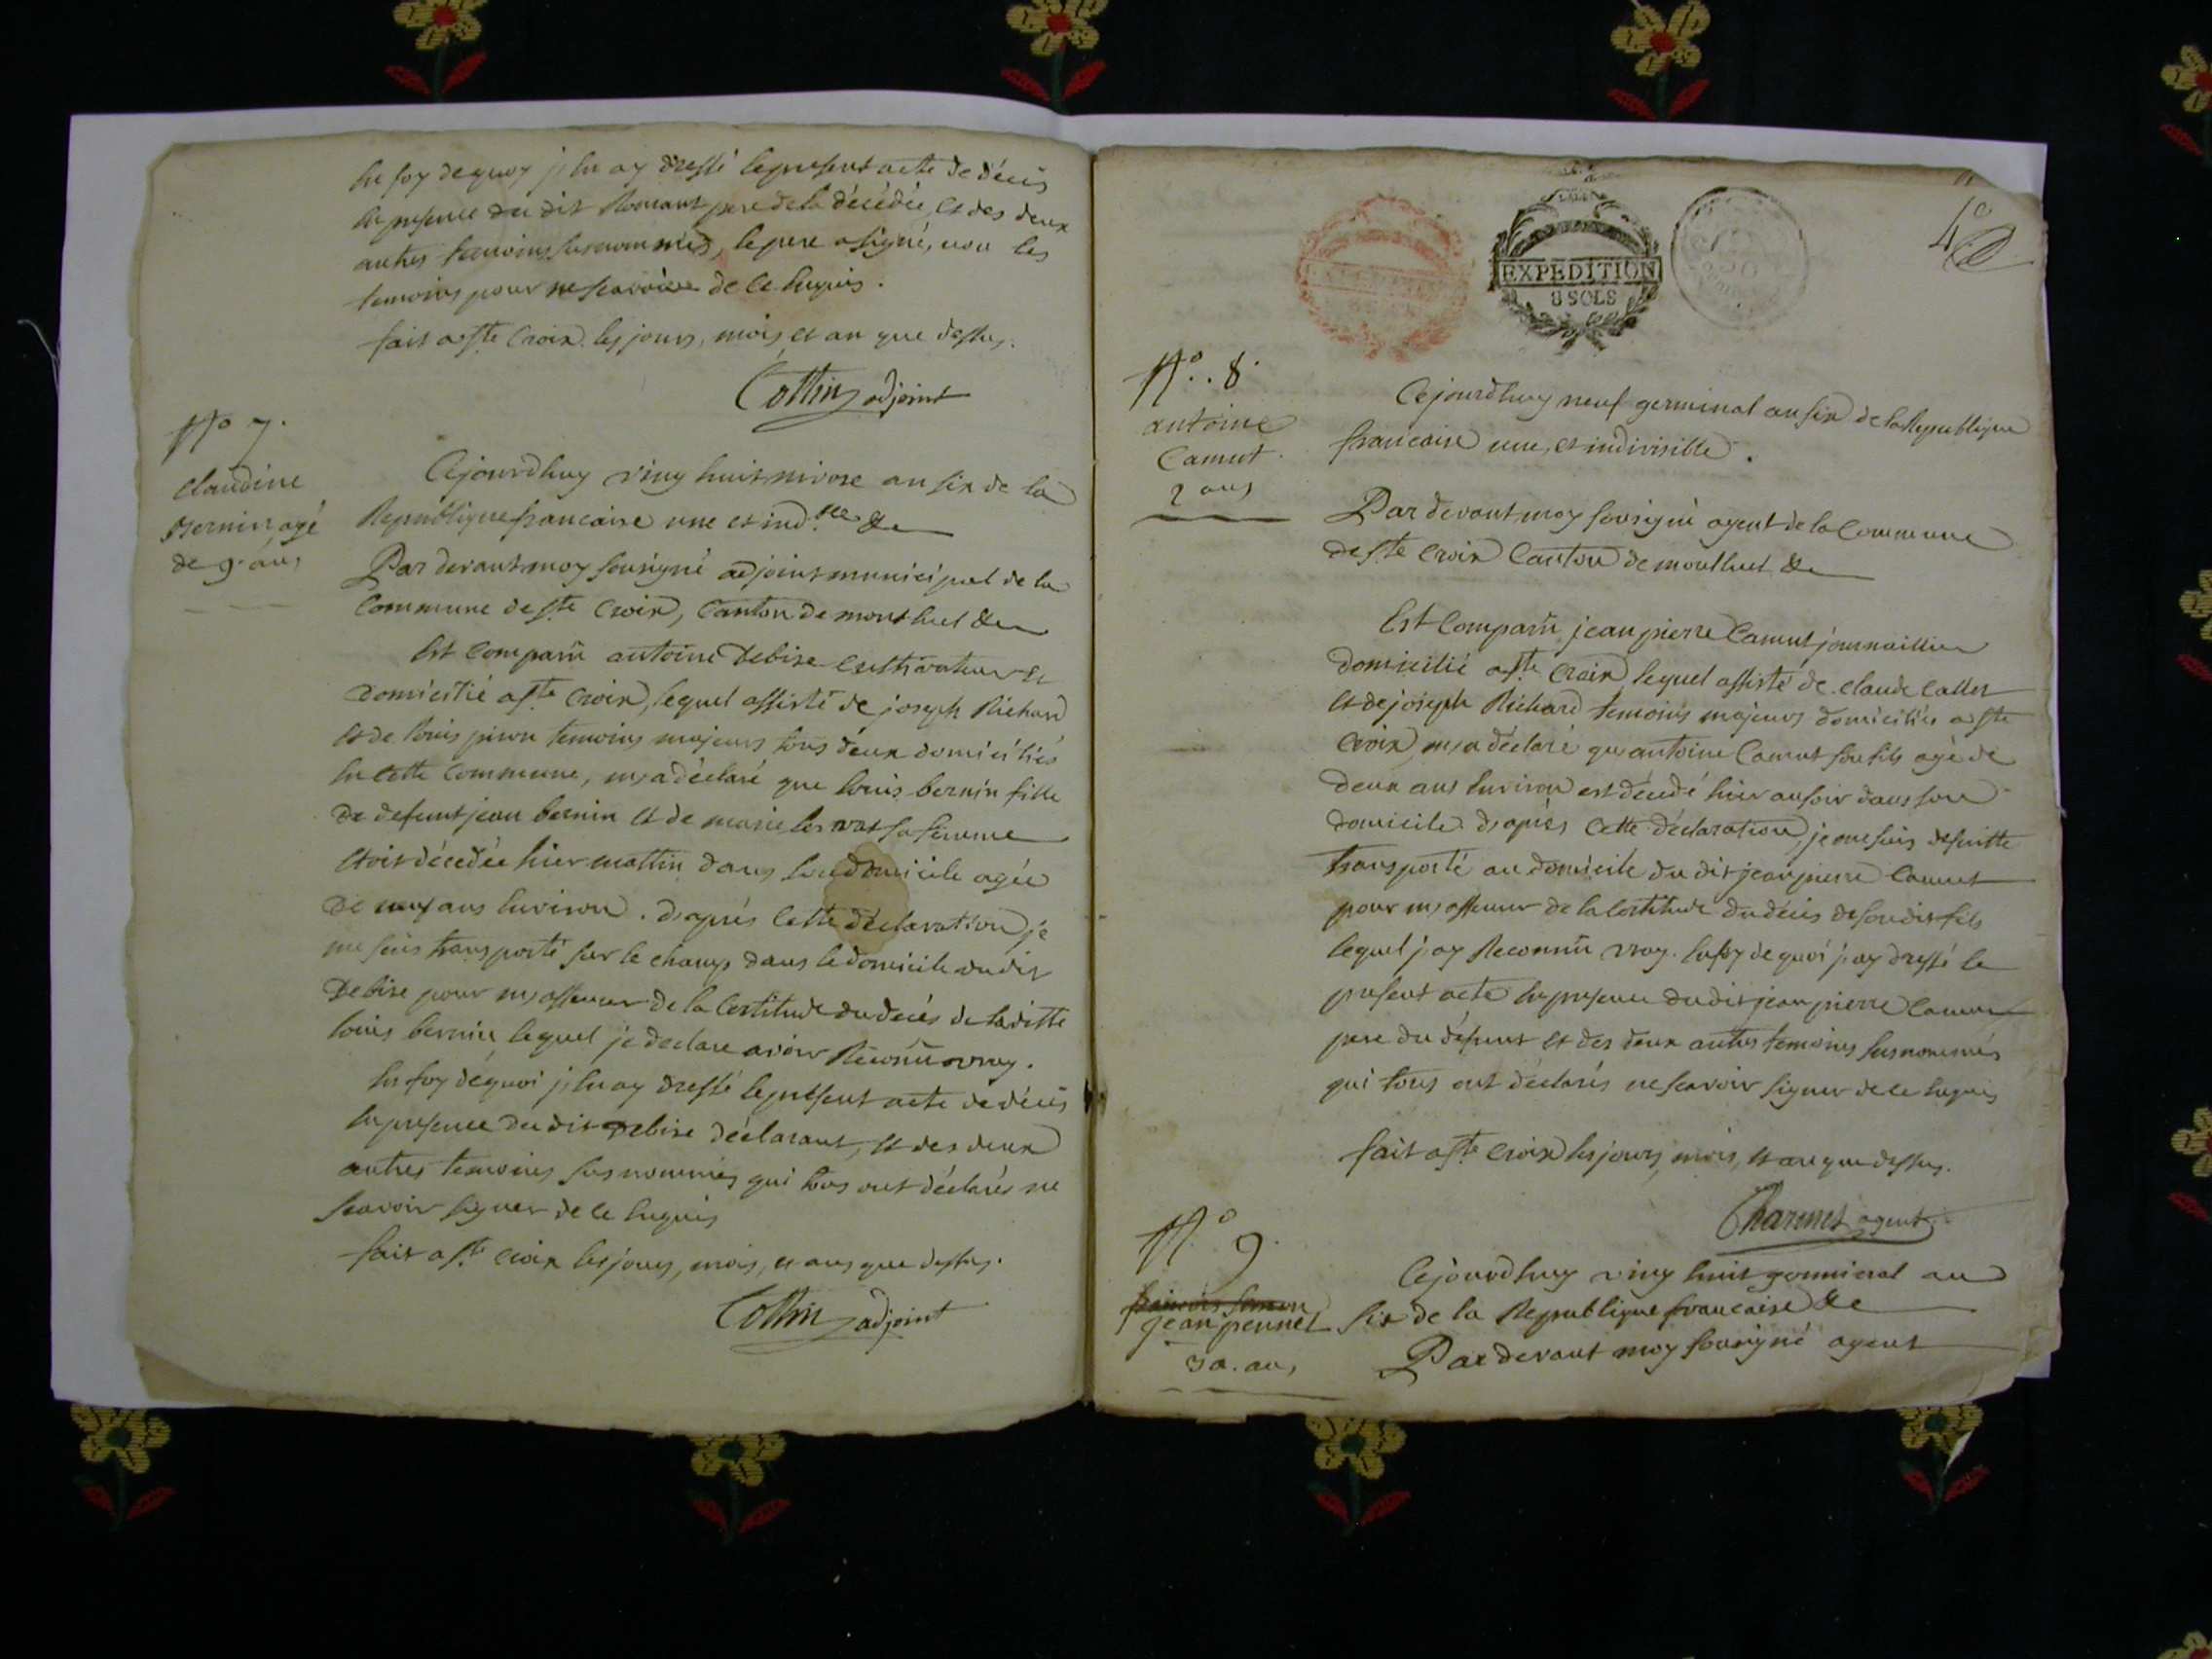 En foy de quoy j'en ay dressé le present acte de décès
en presence du dit Romant pere de la décédée, et des deux
autres temoins susnommés, le pere a signé, non les
temoins pour ne scavoire de ce enquis.
fait a Ste Croix les jours, mois, et an que dessus.
Cottin adjoint
No 7.
Claudine
Bernin agé
de 9. ans
Cejourdhuy ving huit nivose an six de la
Republique francaise une et indble &c
Par devant moy sousigné adjoint municipal de la
Commune de Ste Croix, Canton de montluel &c
Est Comparü antoine Debise Cultivateur
domicilié a Ste Croix, lequel assisté de joseph Richard
et de louis piron temoins majeurs tous deux domiciliés
en cette Commune, m'a déclaré que louis bernin fille
de defunt jean bernin et de marie sa femme
etoit décedée hier mattin dans son domicile agée
de neuf ans environ. d'après cette déclaration je
me suis transporté sur le champ dans le domicile du dit
Debise pour m'assurer de la Certitude du decés de laditte
louis bernin lequel je declare avoir Reconnü vray.
En foy dequoi j'en ay dressé le présent acte de décés
en presence du dit Debise déclarant, et des deux
autres temoins susnommés qui tous ont déclarés ne
scavoir signer de ce enquis
fait a Ste Croix les jours, mois, et ans que dessus.
Cottin adjoint
EXPEDITION
8 SOLS
4e
No. 8.
antoine
Camut
2 ans
Cejourdhuy neuf germinal an six de la Republique
francaise une, et indivisible.
Par devant moy sousigné agent de la Commune
de Ste Croix Canton de montluel &c
Est Comparü jean pierre Camut journaillier
domicilié a Ste Croix lequel assisté de claude Callet
et de joseph Richard temoins majeurs domiciliés a Ste
Croix, m'a déclaré qu'antoine Camut son fils agé de
deux ans environ est décedé hier au soir dans son
domicile d'après cette déclaration, je me suis desuitte
transporté au domicile du dit jean pierre Camut
pour m'assurer de la Certitude du décès de son dit fils
lequel j'ay Reconnü vray. En foy de quoi j'ay dressé le
present acte en presence du dit jean pierre Camut
pere du défunt et des deux autres temoins susnommés
qui tous ont déclarés ne scavoir signer de ce enquis
fait a Ste Croix les jours, mois, et an que dessus.
Charmet agent
No 9.
jean pennet
30. ans
Cejourdhuy ving huit germinal an
six de la Republique francaise &c
Par devant moy sousigné agent